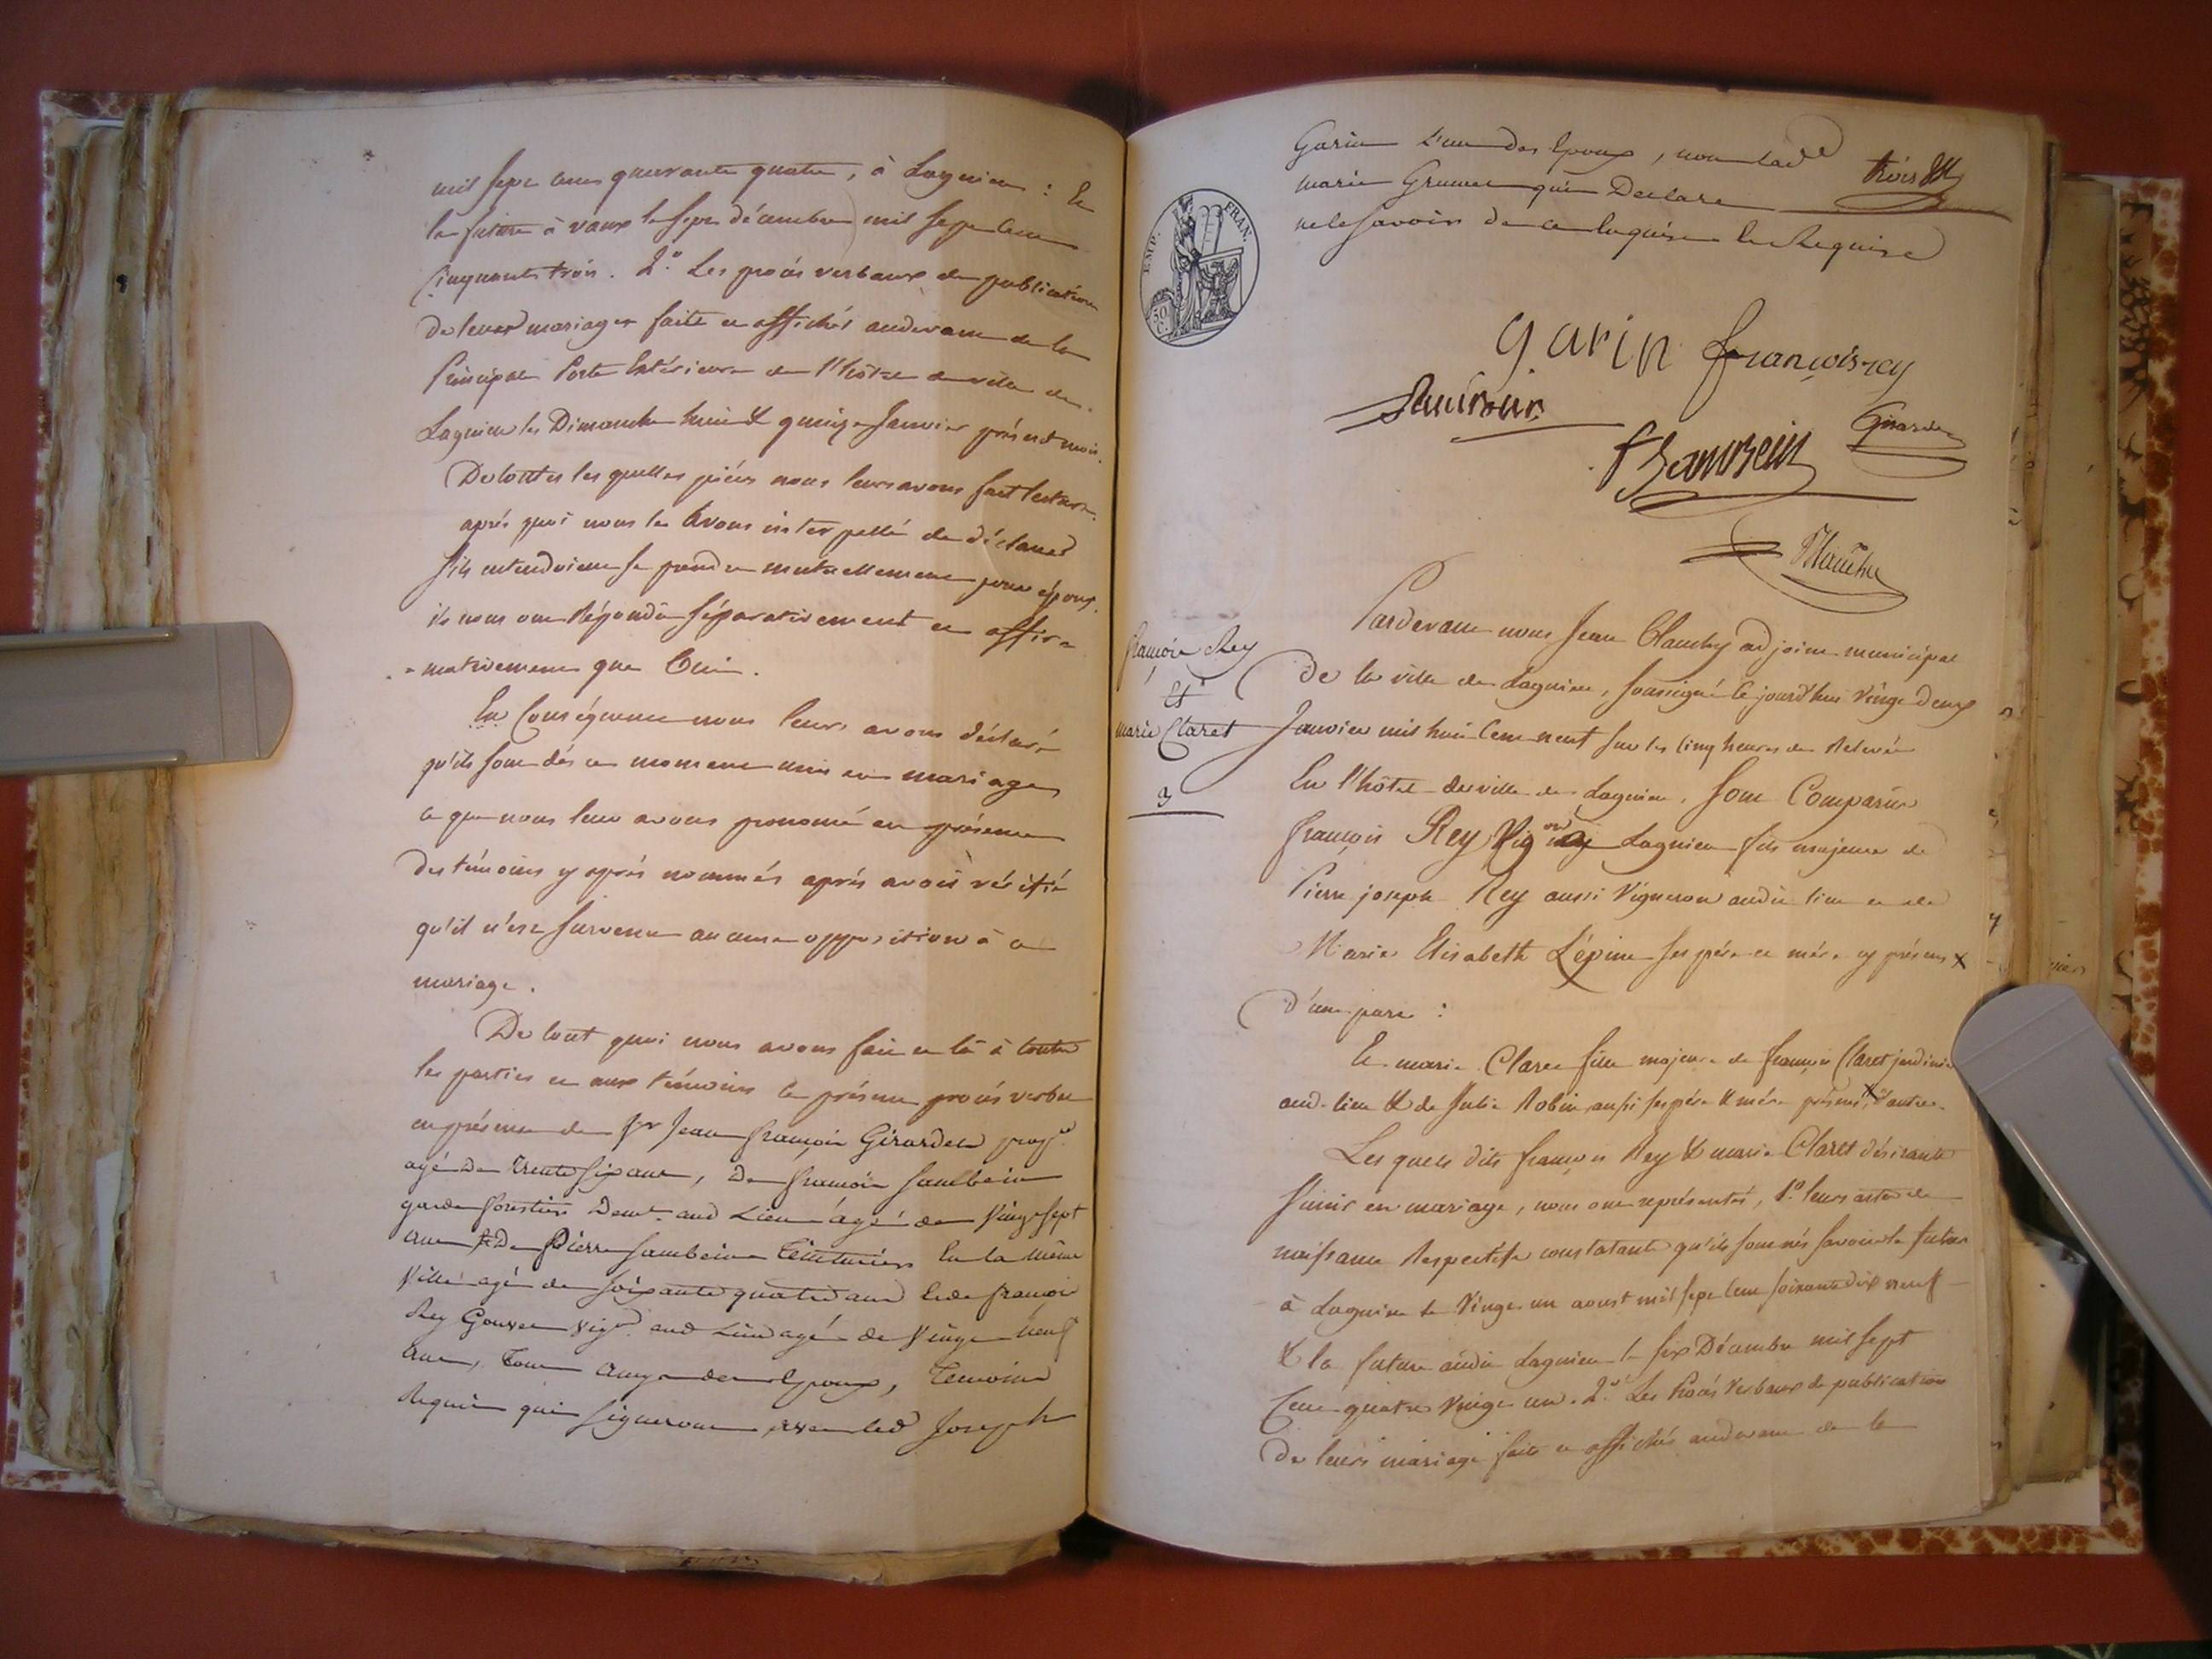 mil sept cent quarante quatre, à Lagnieu : Et
la future à vaux le sept décembre mil sept cent
Cinquante trois. 2° Les procès verbaux de publication
De leurs mariages faits et affichés audevant de la
Principale Porte Extérieure de l'hôtel de ville de
Lagnieu les Dimanche huit & quinze Janvier présent mois.
De toutes les quelles pièces nous leurs avons fait lecture.
après quoi nous les Avons interpellé de déclarer
s'ils entendoient se prendre mutuellement pour époux.
ils nous ont Répondu séparativement et affir=
=mativement que Oui.
En Conséquence nous leurs avons déclaré
qu'ils sont dès ce moment unis en mariage
ce que nous leur avons prononcé en présence
des témoins cy après nommés après avoir vérifié
qu'il n'est survenu aucune opposition à ce
mariage.
De tout quoi nous avons fait et lû à toutes
les parties et aux témoins le présent procès verbal
en présence de Sr Jean françois Girardet prop.re
agé De trente six ans, De françois Sambein
garde forestier Demt. aud Lieu âgé de Vingt sept
ans & De Pierre Sambein Teinturier En la même
Ville agé de soixante quatre ans et de françois
Rey Gouvet vig.on aud Lieu agé de Vingt neuf
ans, Tous amys des Epoux, Temoins
Requis qui signeront avec led Joseph
Garin L'un des Epoux, non lad.e
marie Grumet qui a Declaré
ne le savoir de ce Enquise et Requise
trois
EMP. FRAN.
50 C.
garin françois rey
Sambein
Girardet
Sambein
Blanchy
françois Rey
Et
marie Claret
3
Pardevant nous Jean Blanchy adjoint municipal
De la ville de Lagnieu, soussigné Cejourd'hui Vingt Deux
Janvier mil huit Cent neuf sur les Cinq heures de Relevée
En l'hôtel de ville de Lagnieu, sont Comparus
françois Rey Vigon à Lagnieu fils majeur de
Pierre joseph Rey aussi Vigneron audit lieu et de
Marie Elisabeth Lépine ses père et mère cy présens X
D'une part :
Et marie Claret fille majeure de françois Claret jardinier
aud. lieu & de Julie Robin aussi ses père & mère présens X d'autre.
Les quels dits françois Rey & marie Claret désirants
s'unir en mariage, nous ont représentés, 1° leurs actes de
naissance Respectifs constatants qu'ils sont nés savoir le futur
à Lagnieu le Vingt un aoust mil sept cent soixante dix neuf
& la future audit Lagnieu le six Décembre mil sept
Cent quatre Vingt un. 2° Les Procès Verbaux de publication
De leurs mariage faits et affichés audevant de la